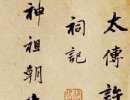 太傅許
祠記
神祖朝